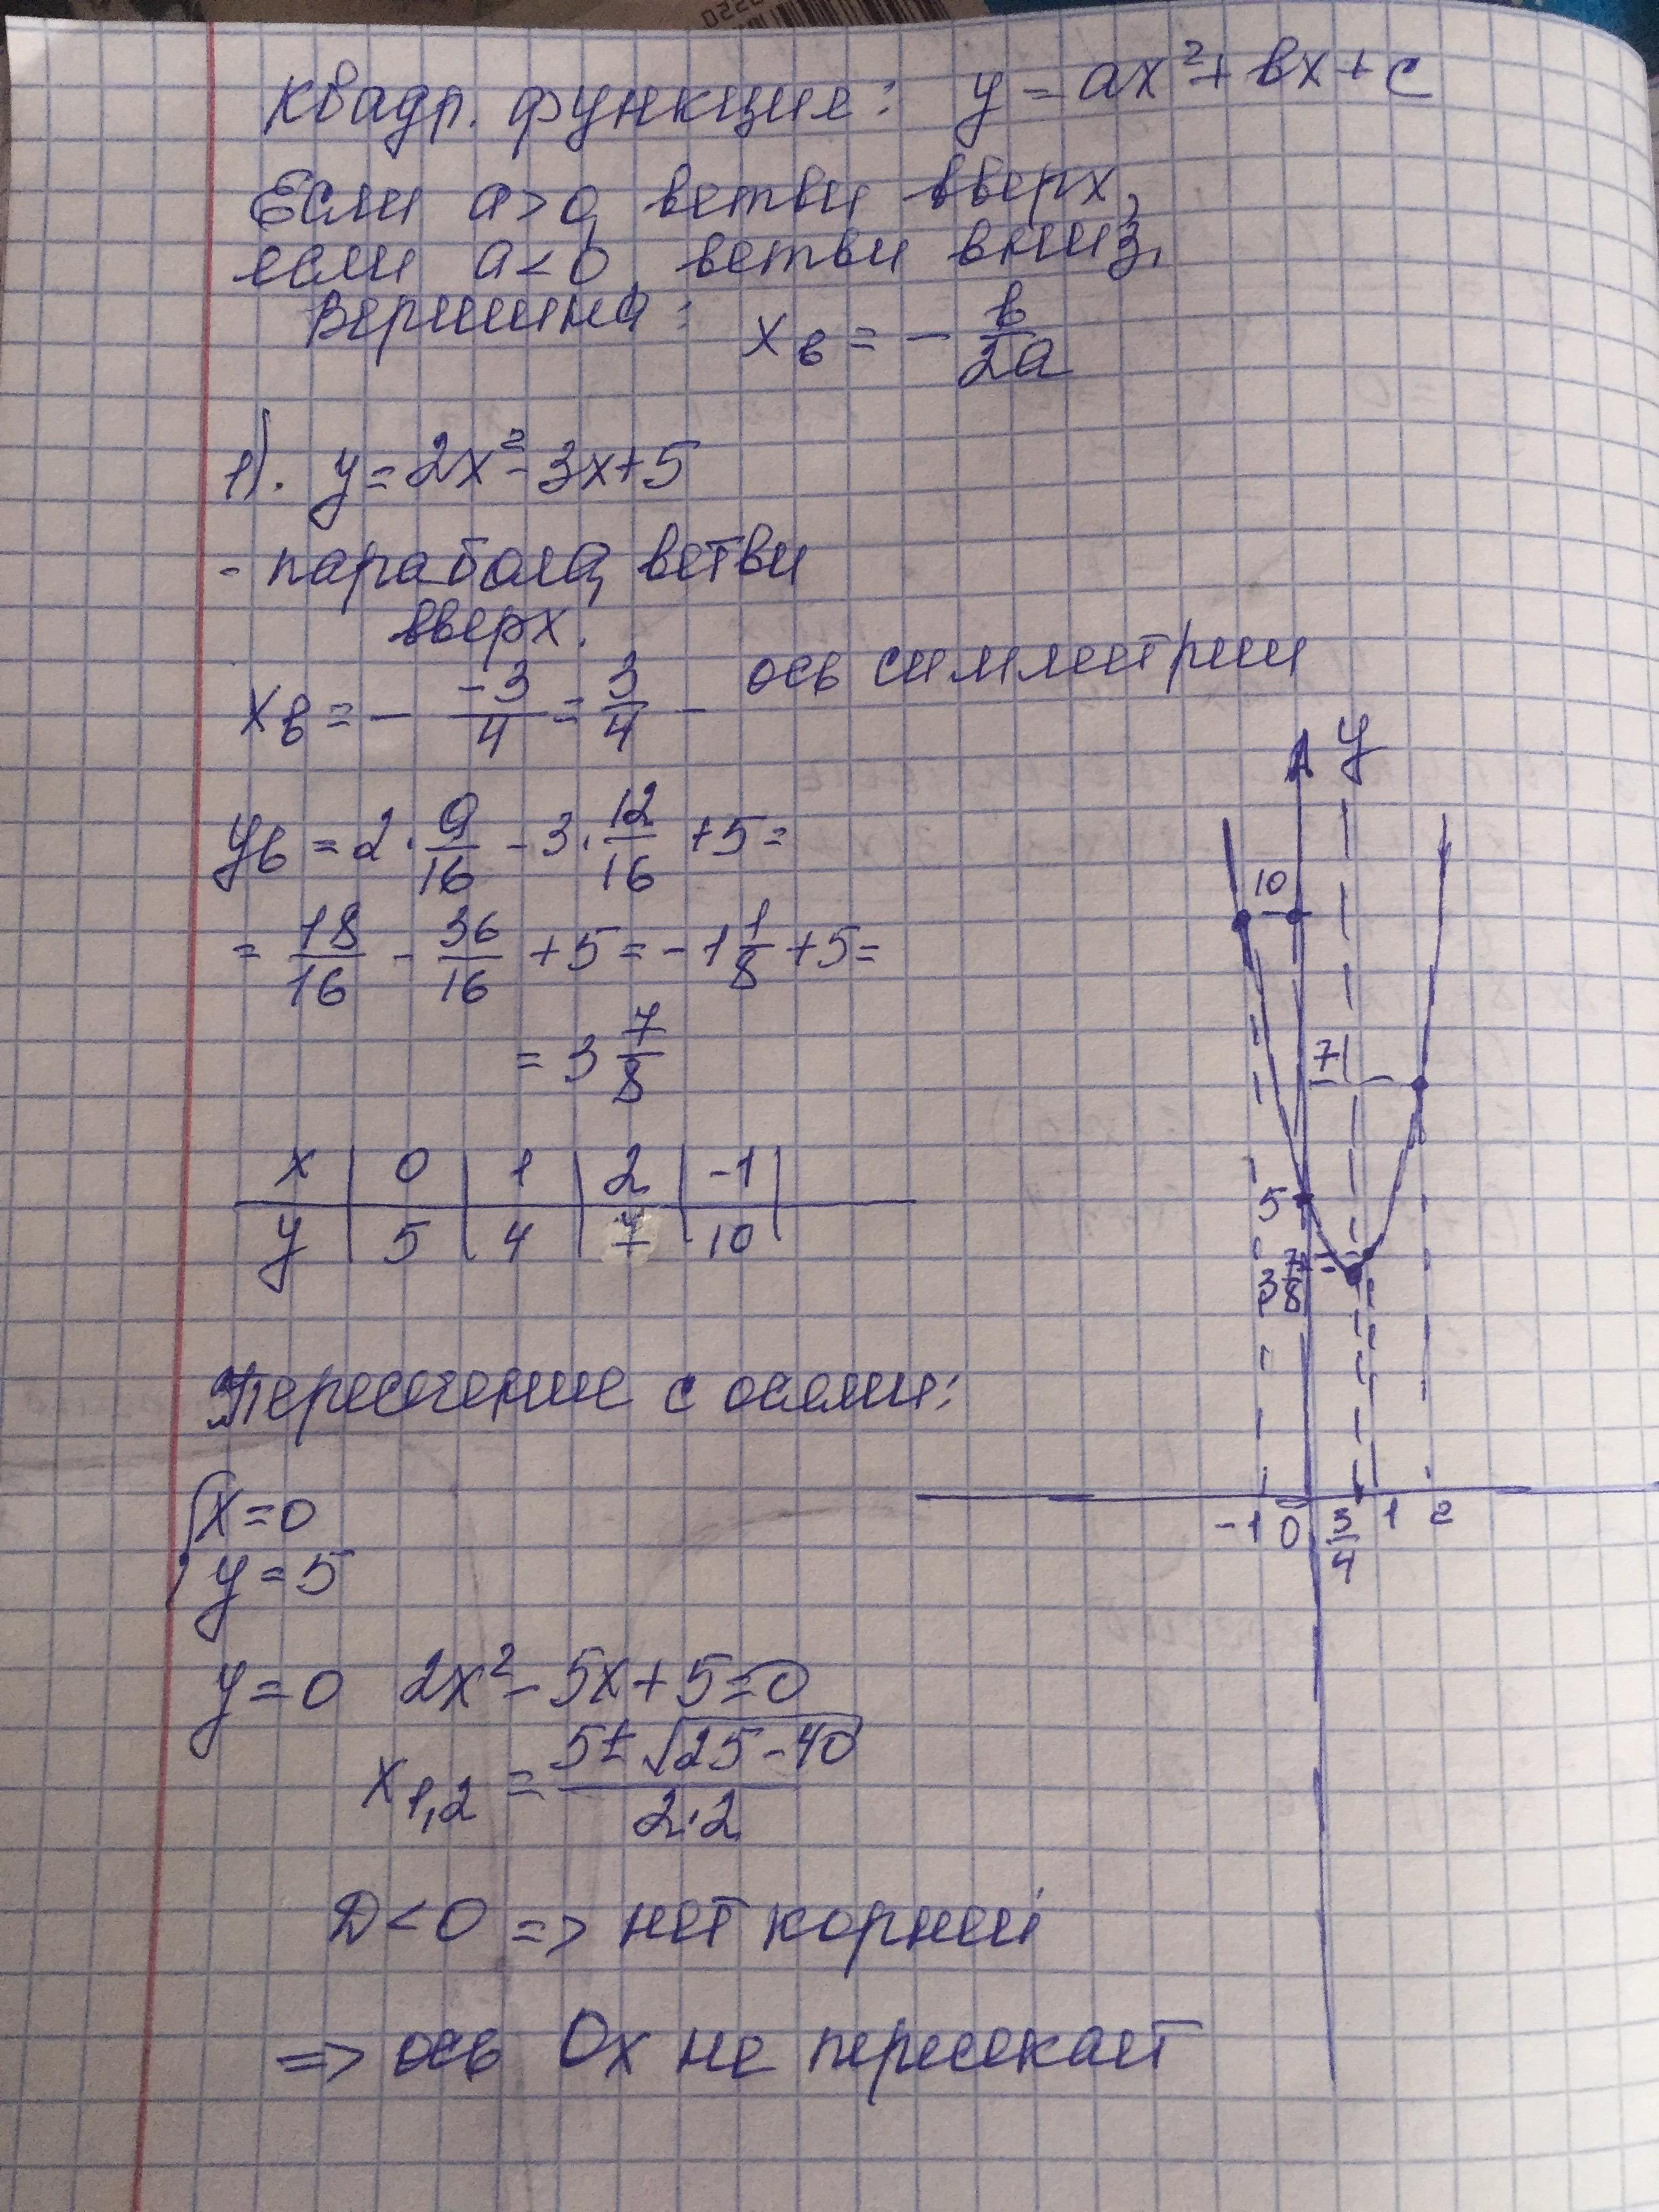 Квадр. функция: y = ax² + bx + c
Если a > 0, ветви вверх,
если a < 0, ветви вниз.
Вершина: x в = - b/2a
1). y = 2x² - 3x + 5
- парабола, ветви
вверх.
x в = - -3/4 = 3/4 - ось симметрии
y в = 2 · 9/16 - 3 · 12/16 + 5 =
= 18/16 - 36/16 + 5 = -1 1/8 + 5 =
= 3 7/8
x | 0 | 1 | 2 | -1 |
y | 5 | 4 | 7 | 10 |
Пересечение с осями:
x = 0
y = 5
y = 0 2x² - 5x + 5 = 0
x 1,2 = 5 ± √25 - 40 / 2·2
D < 0 => нет корней
=> ось Ox не пересекает
y
10
7
5
3 7/8
-1 0 3/4 1 2